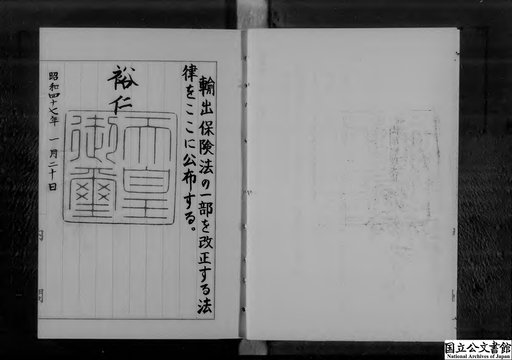 輸出保険法の一部を改正する法
律をここに公布する。
裕仁
天皇
御璽
昭和四十七年 一月二十日
国立公文書館
National Archives of Japan